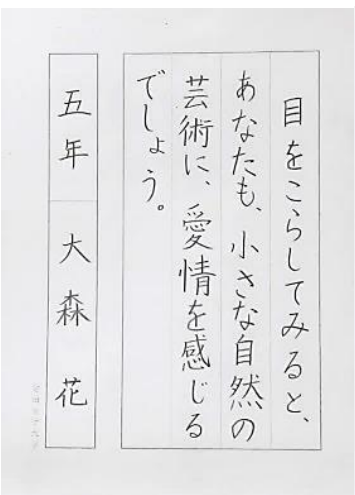 目をこらしてみると、
あなたも、小さな自然の
芸術に、愛情を感じる
でしょう。
五年 大森 花